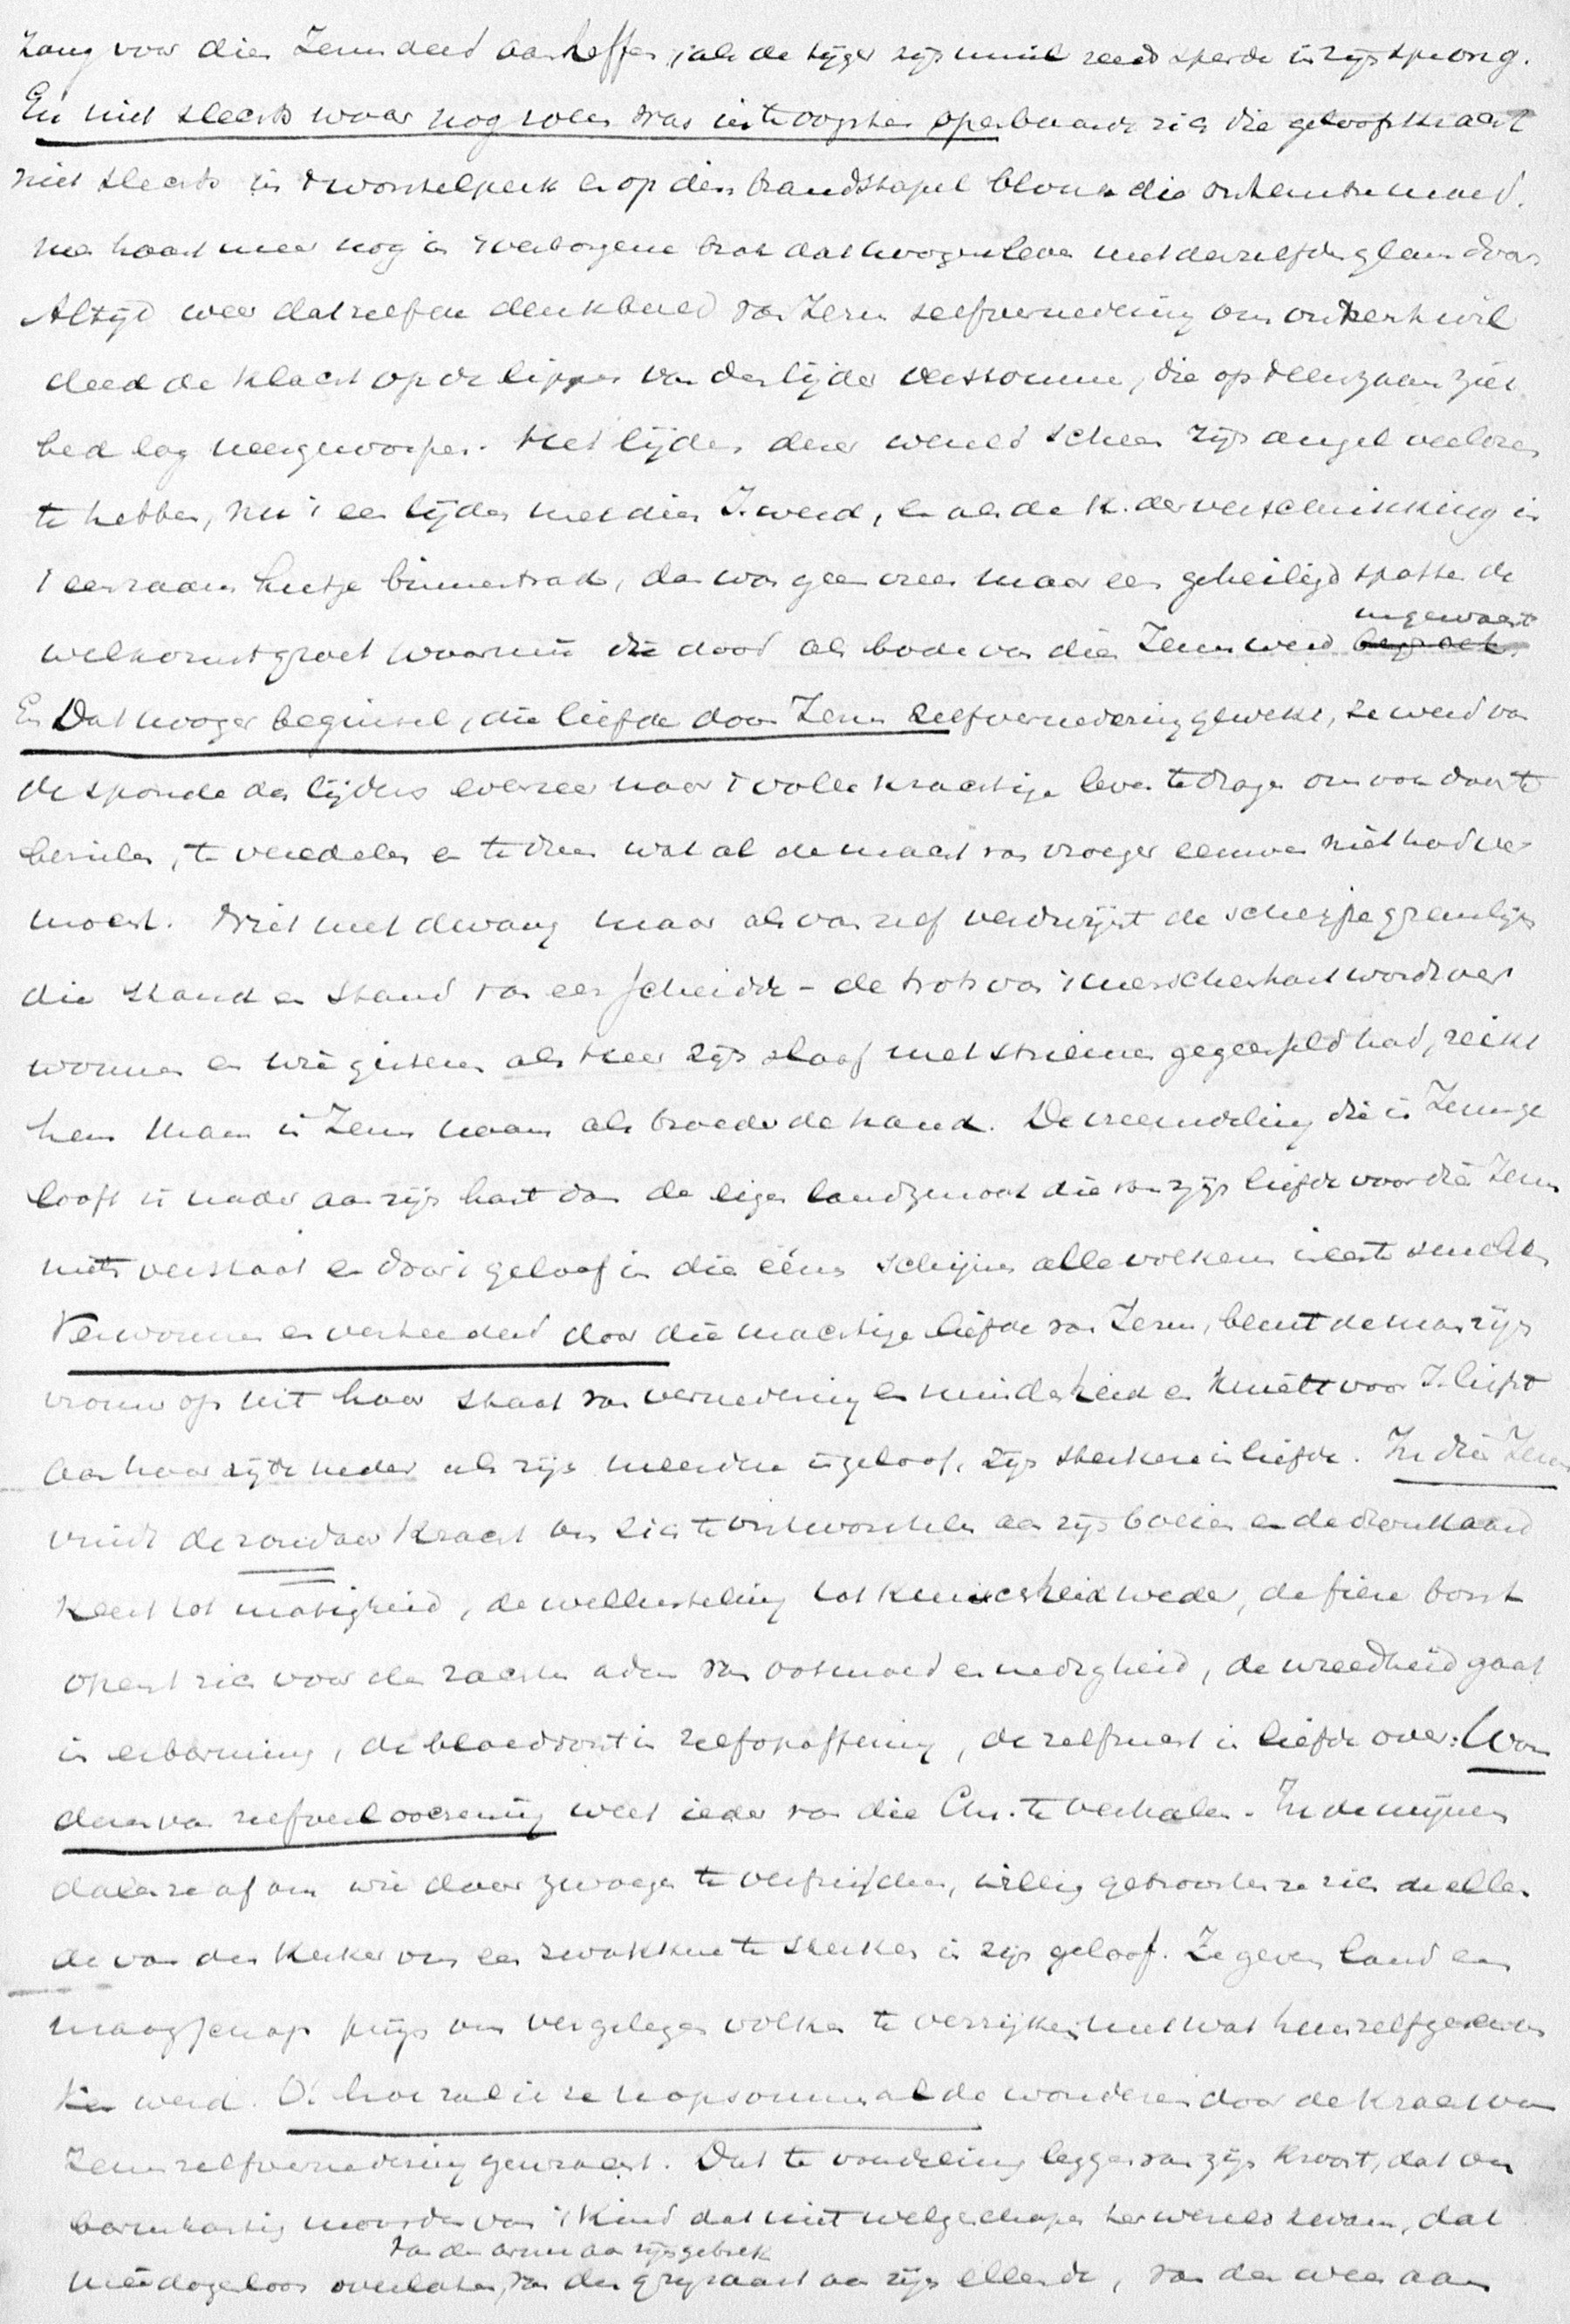 zang voor dien Jezus deed aanheffen, als de tijger zijn muil reeds sperde in zijn sprong.
En niet slechts waar nog roem was in te oogsten openbaarde zich die geloofskracht
niet slechts in 't worstelperk en op den brandstapel blonk die
ma haast meer nog in 't verborgene trad dat hooger leven met denzelfden glans door
Altijd weer datzelfde denkbeeld van Jezus zelfvernedering om onzentwil
deed de klacht op de lippen van den lijder verstomme, die op 't eenzaam ziek
bed lag neergeworpen. Het lijden dezer wereld scheen zijn angel verloren
te hebben, nu 't een lijden met dien J. werd, en als de K. der verschrikking in
't eenzaam hutje binnentrad, dan was geen vrees maar een geheiligd de
welkomstgroet waarmee die dood als bode van dien Jezus werd ingewacht
En Dat hooger beginsel, die liefde door Jezus zelfvernedering gewekt, ze werd van
de sponde des lijders evenzeer naar 't volle krachtige leven te dragen om van daar te
bezielen, te veredelen en te doen wat al de macht van vroeger eeuwen niet had ver
mocht. Niet met dwang maar als van zelf verdwijnt de scherpe grenslijn
die stand en stand van een scheidde - de trots van 't menschenhart wordt over
wonnen en wie gisteren als Heer zijn slaaf met striemen gegeeseld had, reikt
hem thans in Jezus naam als broeder de hand. De vreemdeling die in Jezus ge
looft is nader aan zijn hart dan de eigen landgenoot die van zijn liefde voor dien Jezus
niets verstaat en door 't geloof in die ééne schijnen alle volken ineen te smelten
Verwonnen en verteederd door die machtige liefde van Jezus, beurt de man zijn
vrouw op uit haar staat van vernedering en minderheid en knielt voor J. liefst
aan haar zijde neder als zijn meerdere in geloof, zijn sterkere in liefde. In dien Jezus
vindt de zondaar kracht om zich te ontworstelen aan zijn boeien en de dronkaard
keert tot matigheid, de wellusteling tot kuischheid weder, de fiere borst
opent zich voor den zachten adem van ootmoed en nedrigheid, de wreedheid gaat
in erbarming, de bloeddorst in zelfopoffering, de zelfzucht in liefde over: Won
deren van zelfverloochening weet ieder van die Chr. te verhalen. In de mijnen
dalen ze af om wie daar zwoegen te vertroosten, willig getroosten ze zich de ellen
de van den kerker om een zwakken te sterken in zijn geloof. Ze geven land en
maagschap prijs om vergelegen volken te verrijken met wat hun zelf geschon
ken werd. O! hoe zal ik ze u opsommen al de wonderen door de kracht van
Jezus zelfvernedering gewracht. Dat te vondeling leggen van zijn kroost, dat on
barmhartig moorden van 't kind dat niet welgeschapen ter wereld kwam, dat
van den arme aan zijn gebrek
meêdogenloos overlaten, van den grijsaard aan zijn ellende, van den wees aan